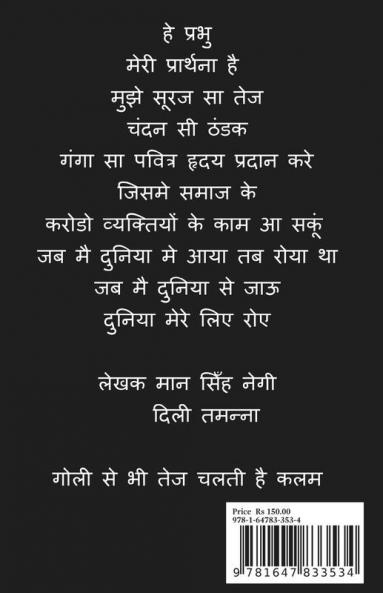 हे प्रभु
मेरी प्रार्थना है
मुझे सूरज सा तेज
चंदन सी ठंडक
गंगा सा पवित्र हृदय प्रदान करे
जिसमे समाज के
करोडो व्यक्तियों के काम आ सकूं
जब मै दुनिया मे आया तब रोया था
जब मै दुनिया से जाऊ
दुनिया मेरे लिए रोए
लेखक मान सिँह नेगी
दिली तमन्ना
गोली से भी तेज चलती है कलम
Price Rs 150.00
978-1-64783-353-4
9 781647 833534